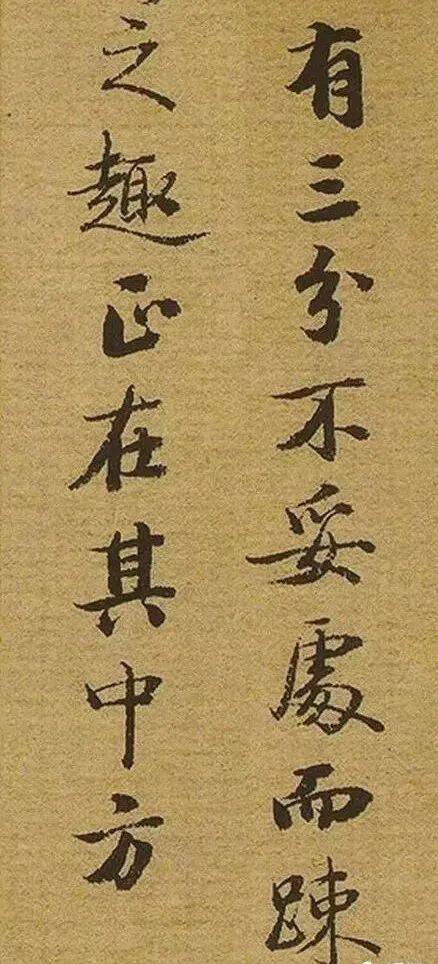 有三分不妥處而踈
之趣正在其中方